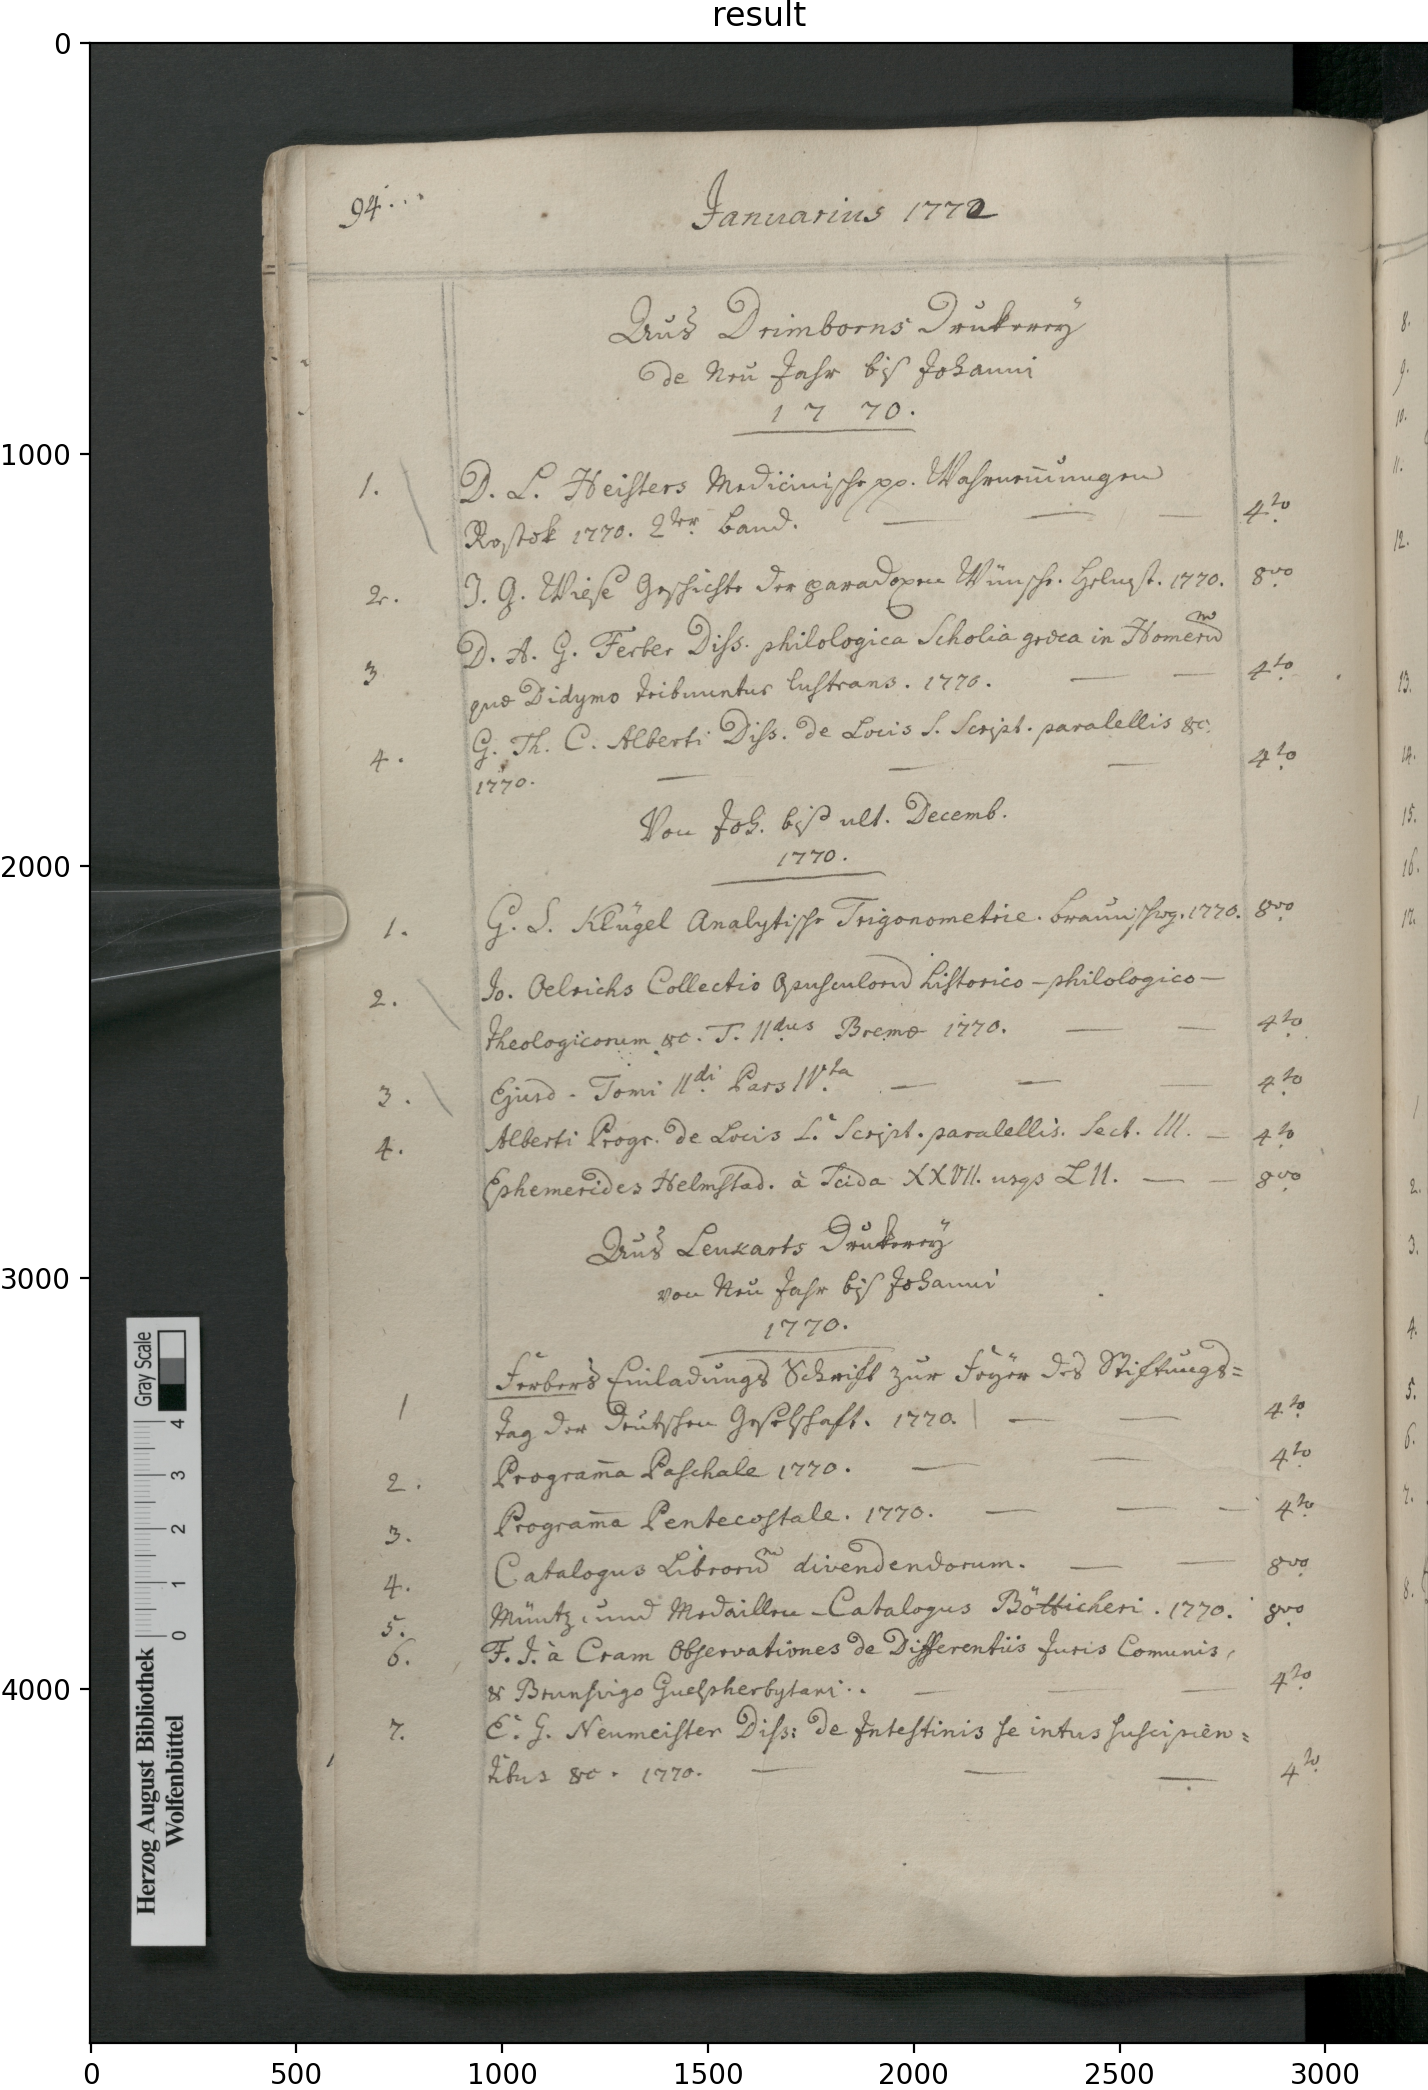 result
94...
Januarius 1772
Aus Drimborns Drukerey
de Neu Jahr biß Johanni
1770.
1. D. L. Heisters Medicinische pp. Wahrnem̄ungen
Rostok 1770. 2ter Band. — — — 4to
2. J. G. Wiese Geschichte der paradoxen Wünsche. Helmst. 1770. 8vo
3 D. A. G. Ferber Diss. philologica Scholia græca in Homerum
quæ Didymo tribuuntur lustrans. 1770. — — 4to
4. G. Th. C. Alberti Diss. de Locis S. Script. paralellis &c.
1770. — — — 4to
Von Joh. biß ult. Decemb.
1770.
1. G. S. Klügel Analytische Trigonometrie. Braunschwg. 1770. 8vo
2. Jo. Oelrichs Collectio Opusculorum historico-philologico-
theologicorum &c. T. IIdus Bremæ 1770. — — 4to
3. Ejusd. Tomi IIdi Pars IVta — — — 4to
4. Alberti Progr. de Locis S. Script. paralellis. Sect. III. — 4to
Ephemerides Helmstad. à Scida XXVII. usqs LII. — — 8vo
Aus Leukarts Drukerey
von Neu Jahr biß Johanni
1770.
1 Ferbers Einladungs Schrift zur Feyer des Stiftungs=
tag der deutschen Geselschaft. 1770. — — 4to
2. Program̄a Paschale 1770. — — 4to
3. Program̄a Pentecostale. 1770. — — — 4to
4. Catalogus Librorum divendendorum. — — 8vo
5. Müntz und Medaillen-Catalogus Bötticheri. 1770. 8vo
6. F. J. à Cram Observationes de Differentiis Juris Comunis,
& Brunsvigo Guelpherbytani.. — — — 4to
7. E. G. Neumeister Diss: de Intestinis se intus suscipien=
tibus &c. 1770. — — — 4to
8.
9.
10.
11.
12.
13.
14.
15.
16.
17.
1
2.
3.
4.
5.
6.
7.
8.
Gray Scale
0 1 2 3 4
Herzog August Bibliothek
Wolfenbüttel
0
1000
2000
3000
4000
0 500 1000 1500 2000 2500 3000